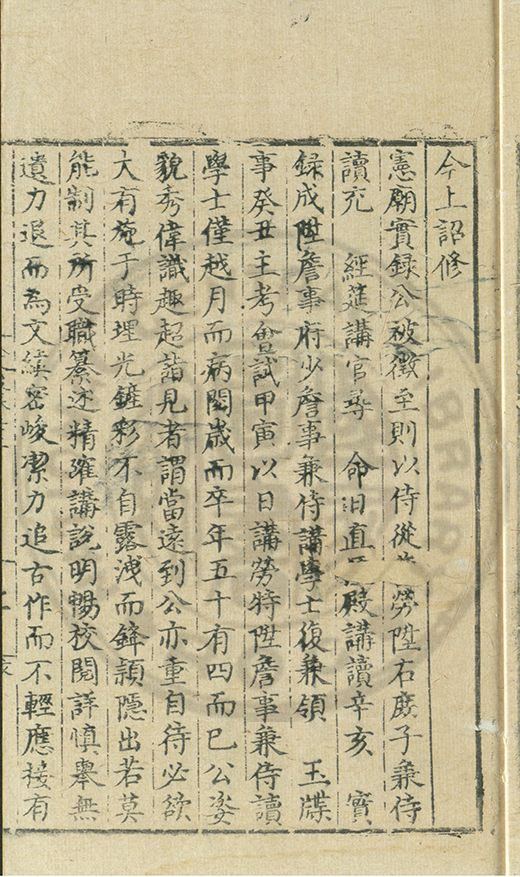 今上詔修
憲廟實録公被徵至則以侍從 勞陞右庶子兼侍
讀充 經筵講官尋 命日直 殿講讀辛亥 實
録成陞詹事府少詹事兼侍講學士復兼領 玉牒
事癸丑主考會試甲寅以日講勞特陞詹事兼侍讀
學士僅越月而病閱歳而卒年五十有四而已公姿
貌秀偉識趣超詣見者謂當遠到公亦重自待必欲
大有施于時埋光鏟彩不自露洩而鋒頴隱出若莫
能制其所受職纂述精確講說明暢校閱詳慎舉無
遺力退而為文縝密峻潔力追古作而不輕應接有